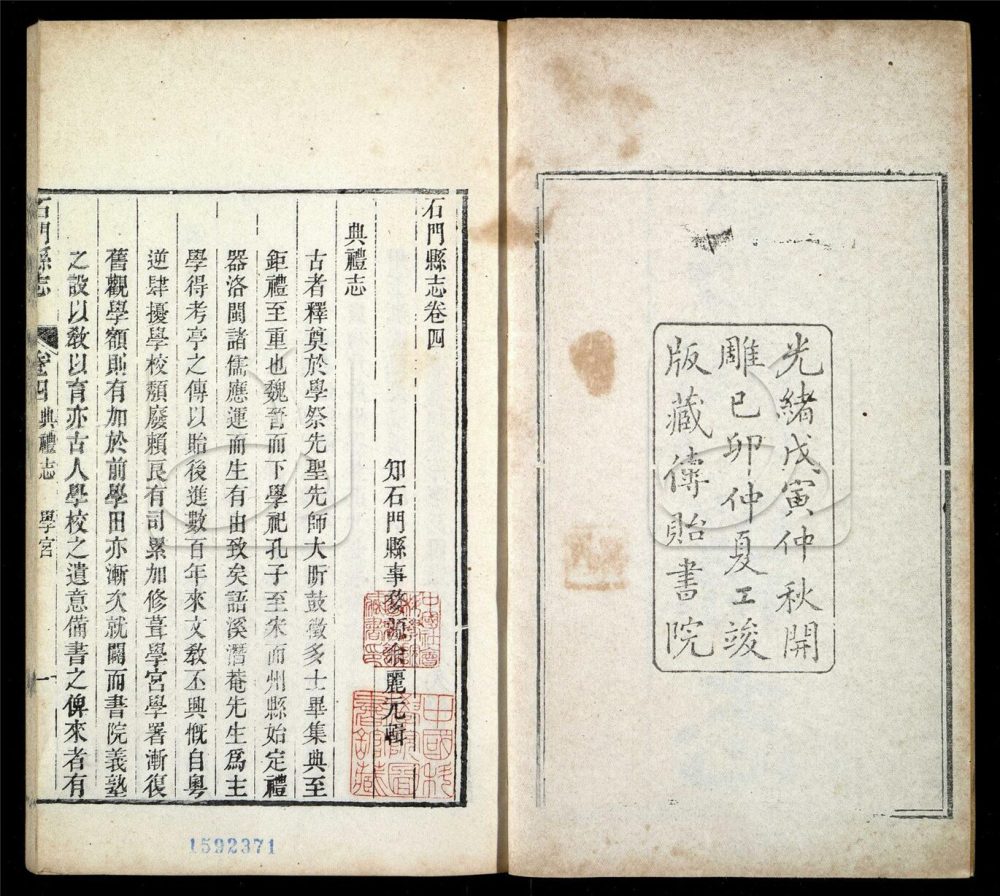 光緒戊寅仲秋開
雕己卯仲夏工竣
版藏傳貽書院
石門縣志卷四
知石門縣事婺源余麗元輯
典禮志
古者釋奠於學祭先聖先師大昕鼓徵多士畢集典至
鉅禮至重也魏晉而下學祀孔子至宋而州縣始定禮
器洛閩諸儒應運而生有由致矣語溪潛菴先生爲主
學得考亭之傳以貽後進數百年來文敎丕興慨自粵
逆肆擾學校頹廢賴良有司累加修葺學宮學署漸復
舊觀學額則有加於前學田亦漸次就闢而書院義塾
之設以敎以育亦古人學校之遺意備書之俾來者有
石門縣志 卷四 典禮志 學宮 一
1592371